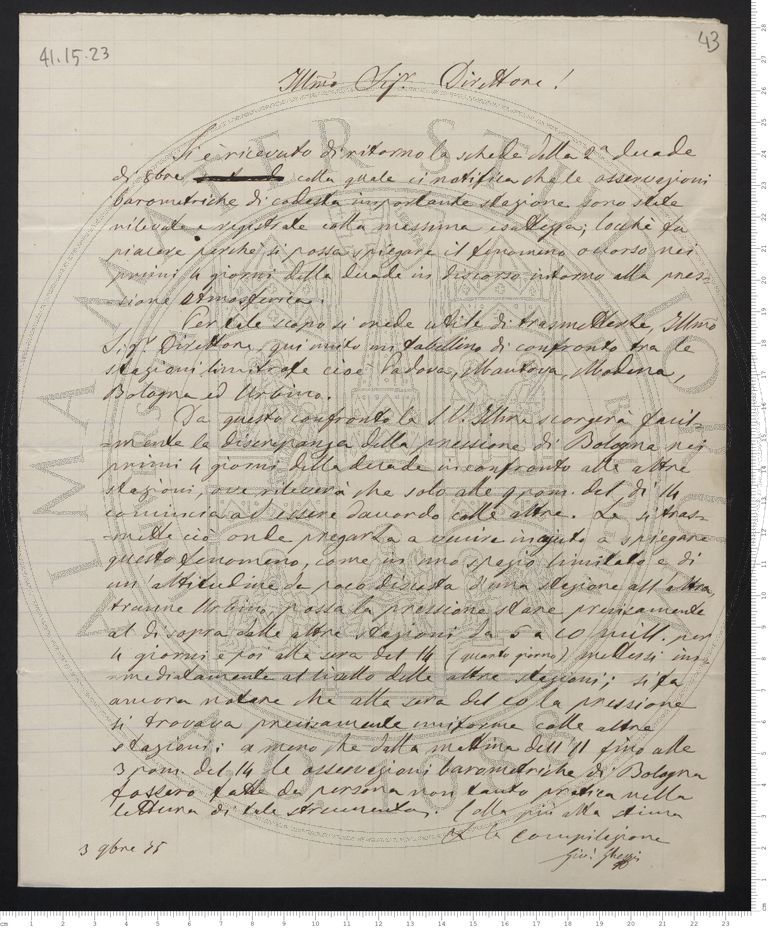 41.15.23
43
Illmo Sigr. Direttore!
Si è ricevuto di ritorno la scheda della 2a decade
di 8bre colla quale ci notifica che le osservazioni
barometriche di codesta importante stazione sono state
rilevate e registrate colla massima esattezza; locchè fa
piacere perchè si possa spiegare il fenomeno occorso nei
primi 4 giorni della decade in discorso intorno alla pres=
=sione atmosferica.
Per tale scopo si crede utile di trasmetterle, Illmo
Sigr. Direttore, qui unito un tabellino di confronto tra le
stazioni limitrofe cioè Padova, Mantova, Modena,
Bologna ed Urbino.
Da questo confronto la S.V. Illma scorgerà facil=
=mente la discrepanza della pressione di Bologna nei
primi 4 giorni della decade in confronto alle altre
stazioni, ove rileverà che solo alle 9 pom. del dì 14
comincia ad essere d'accordo colle altre. Le si tras=
=mette ciò onde pregarla a venire in ajuto a spiegare
questo fenomeno, come in uno spazio limitato e di
un'altitudine da poco discosta d'una stazione all'altra,
tranne Urbino, possa la pressione stare precisamente
al di sopra delle altre stazioni da 5 a 10 mill. per
4 giorni e poi alla sera del 14 (quarto giorno) mettersi im=
=mediatamente al livello delle altre stazioni; si fa
ancora notare che alla sera del 10 la pressione
si trovava precisamente uniforme colle altre
stazioni; a meno che dalla mattina dell'11 fino alle
3 pom. del 14 le osservazioni barometriche di Bologna
fossero fatte da persona non tanto pratica nella
lettura di tale strumento. Colla più alta stima
La Compilazione
3 9bre 75
ALMA MATER STUDIORUM
A.D. 1088